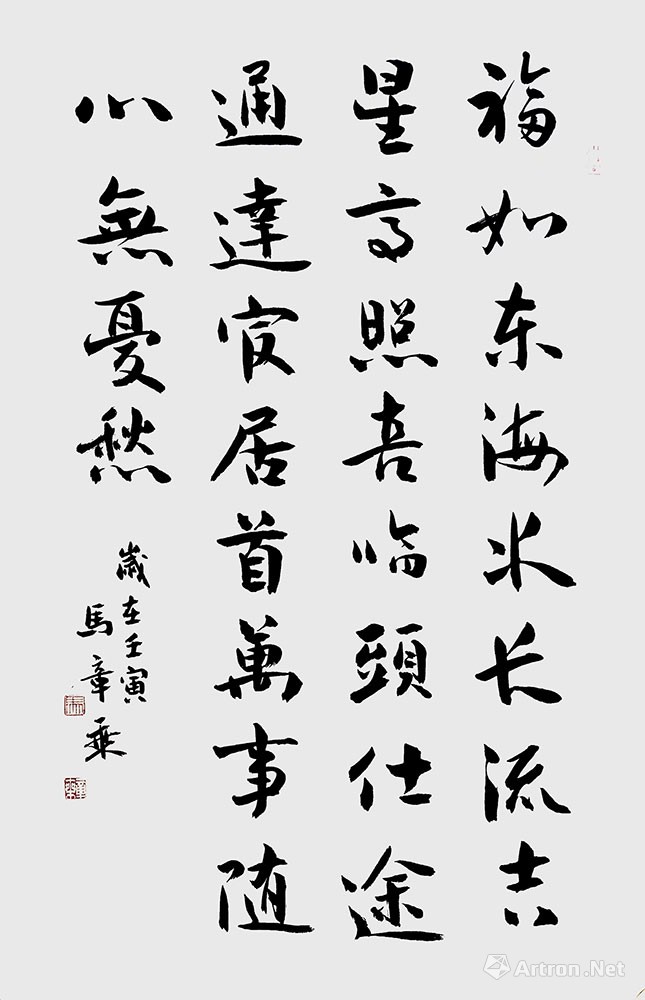 福如东海水长流吉
星高照喜临頭仕途
通達官居首萬事随
心無憂愁
歲在壬寅
馬章乘
Artron.Net